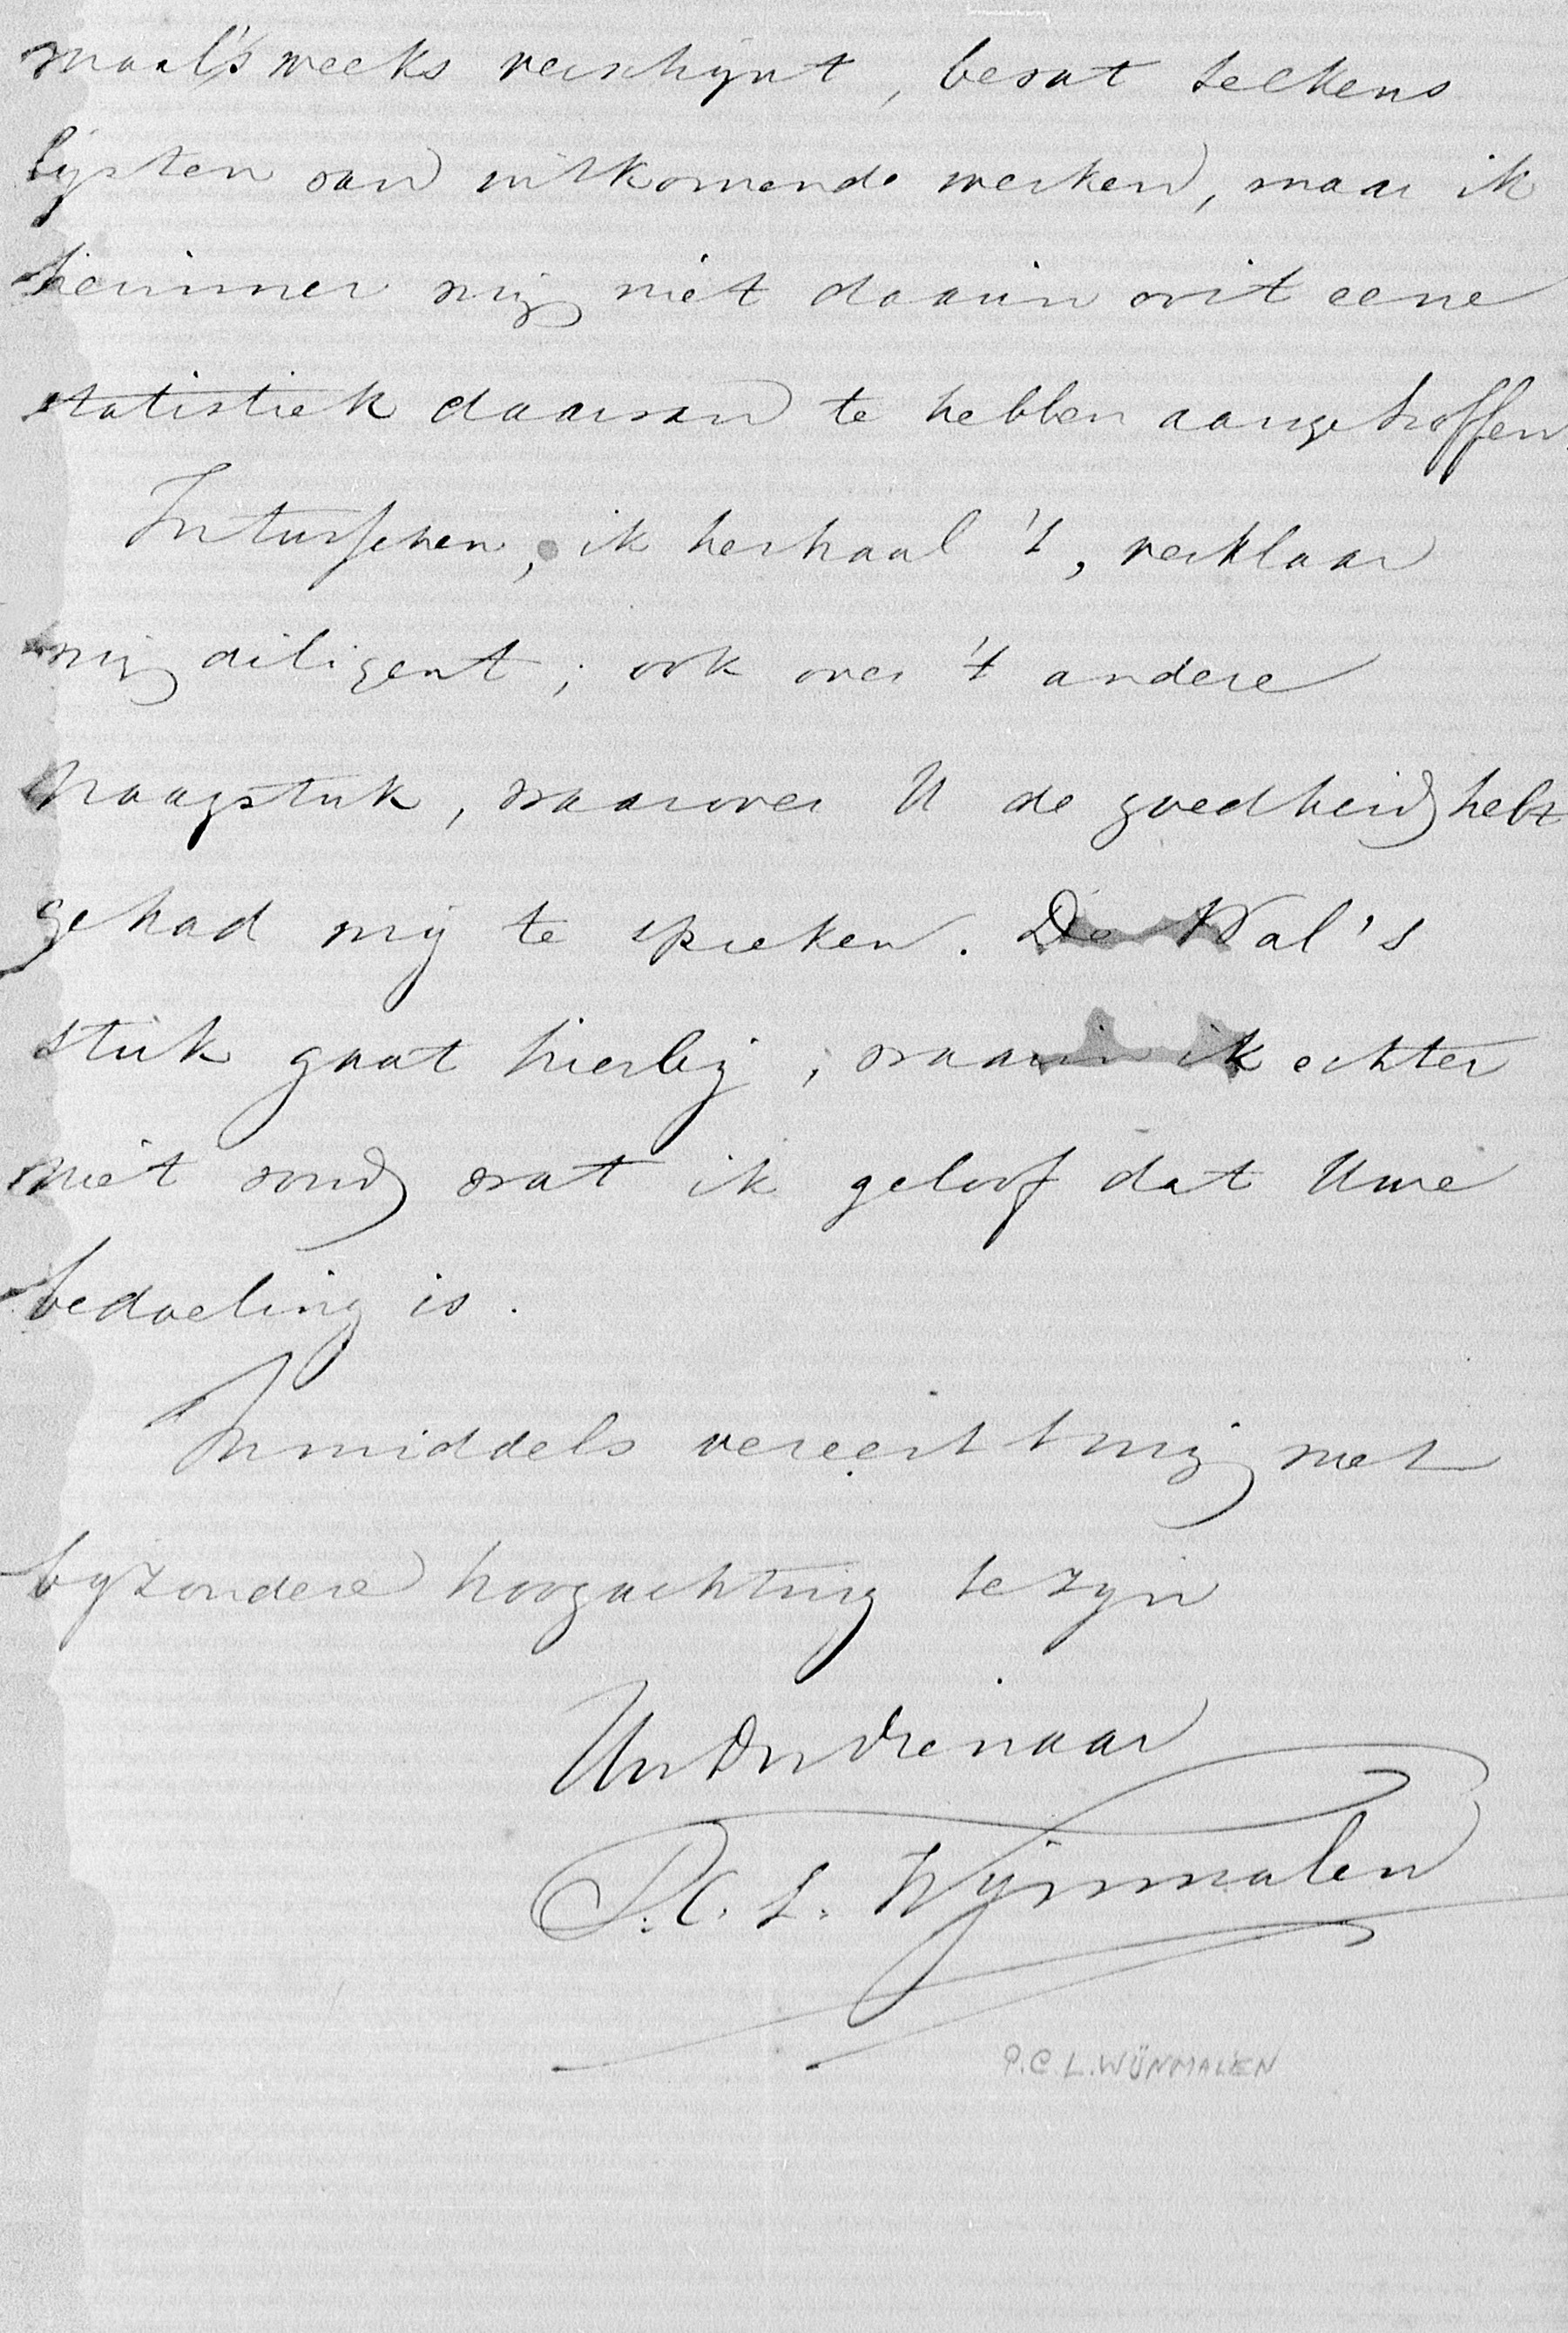 maal 's weeks verschijnt, bevat telkens
lijsten van uitkomende werken, maar ik
herinner mij niet daarin ooit eene
statistiek daarvan te hebben aangetroffen.
Intusschen, ik herhaal 't, verklaar
mij diligent; ook over 't andere
vraagstuk, waarover U de goedheid hebt
gehad mij te spreken. De Wal's
stuk gaat hierbij; waarin ik echter
niet vond wat ik geloof dat Uwe
bedoeling is.
Inmiddels vereert 't mij met
bijzondere hoogachting te zijn
Uw Dw dienaar
P.C.L. Wijnmalen
P.C.L. WÜNMALEN